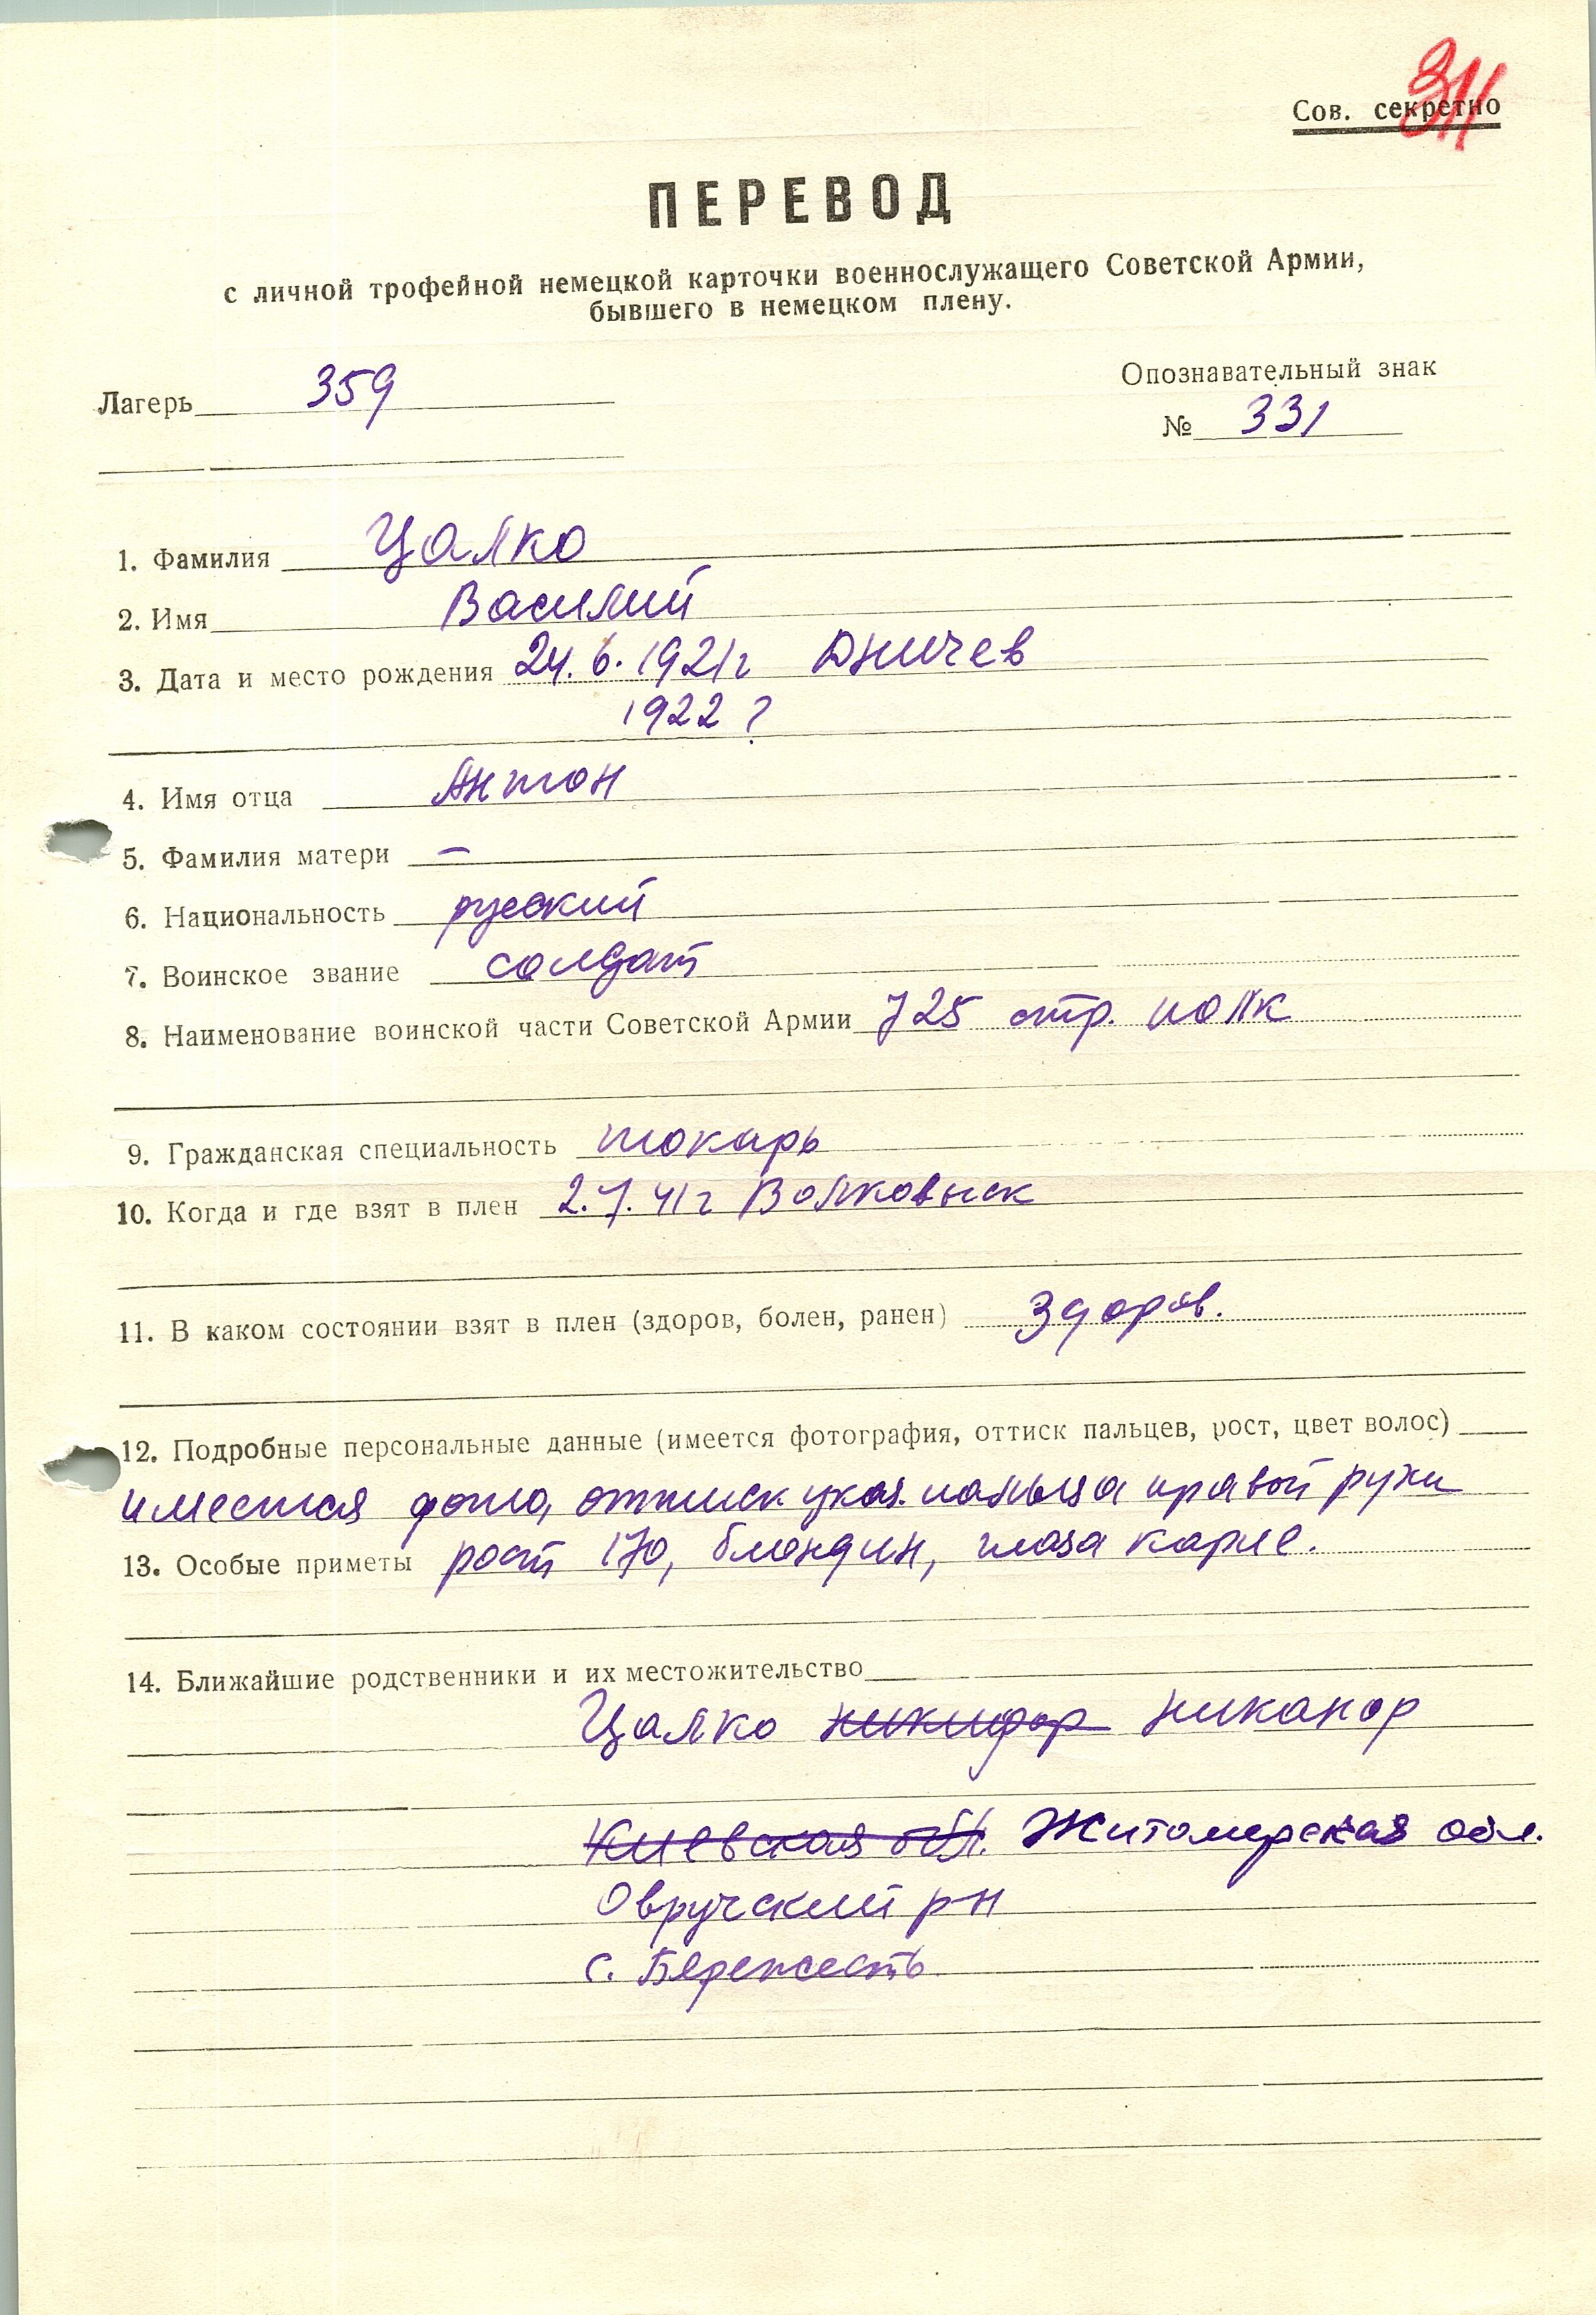 311
Сов. секретно
ПЕРЕВОД
с личной трофейной немецкой карточки военнослужащего Советской Армии,
бывшего в немецком плену.
Опознавательный знак
Лагерь 359
№ 331
1. Фамилия Цалко
2. Имя Василий
3. Дата и место рождения 24.6.1921г Дничев
1922 ?
4. Имя отца Антон
5. Фамилия матери –
6. Национальность русский
7. Воинское звание солдат
8. Наименование воинской части Советской Армии 725 стр. полк
9. Гражданская специальность токарь
10. Когда и где взят в плен 2.7.41г Волковыск
11. В каком состоянии взят в плен (здоров, болен, ранен) Здоров.
12. Подробные персональные данные (имеется фотография, оттиск пальцев, рост, цвет волос)
имеется фото, оттиск указ. пальца правой руки
13. Особые приметы рост 170, блондин, глаза карие.
14. Ближайшие родственники и их местожительство
Цалко Никифор Никанор
Киевская обл. Житомерская обл.
Овручский р-н
с. Бережесть